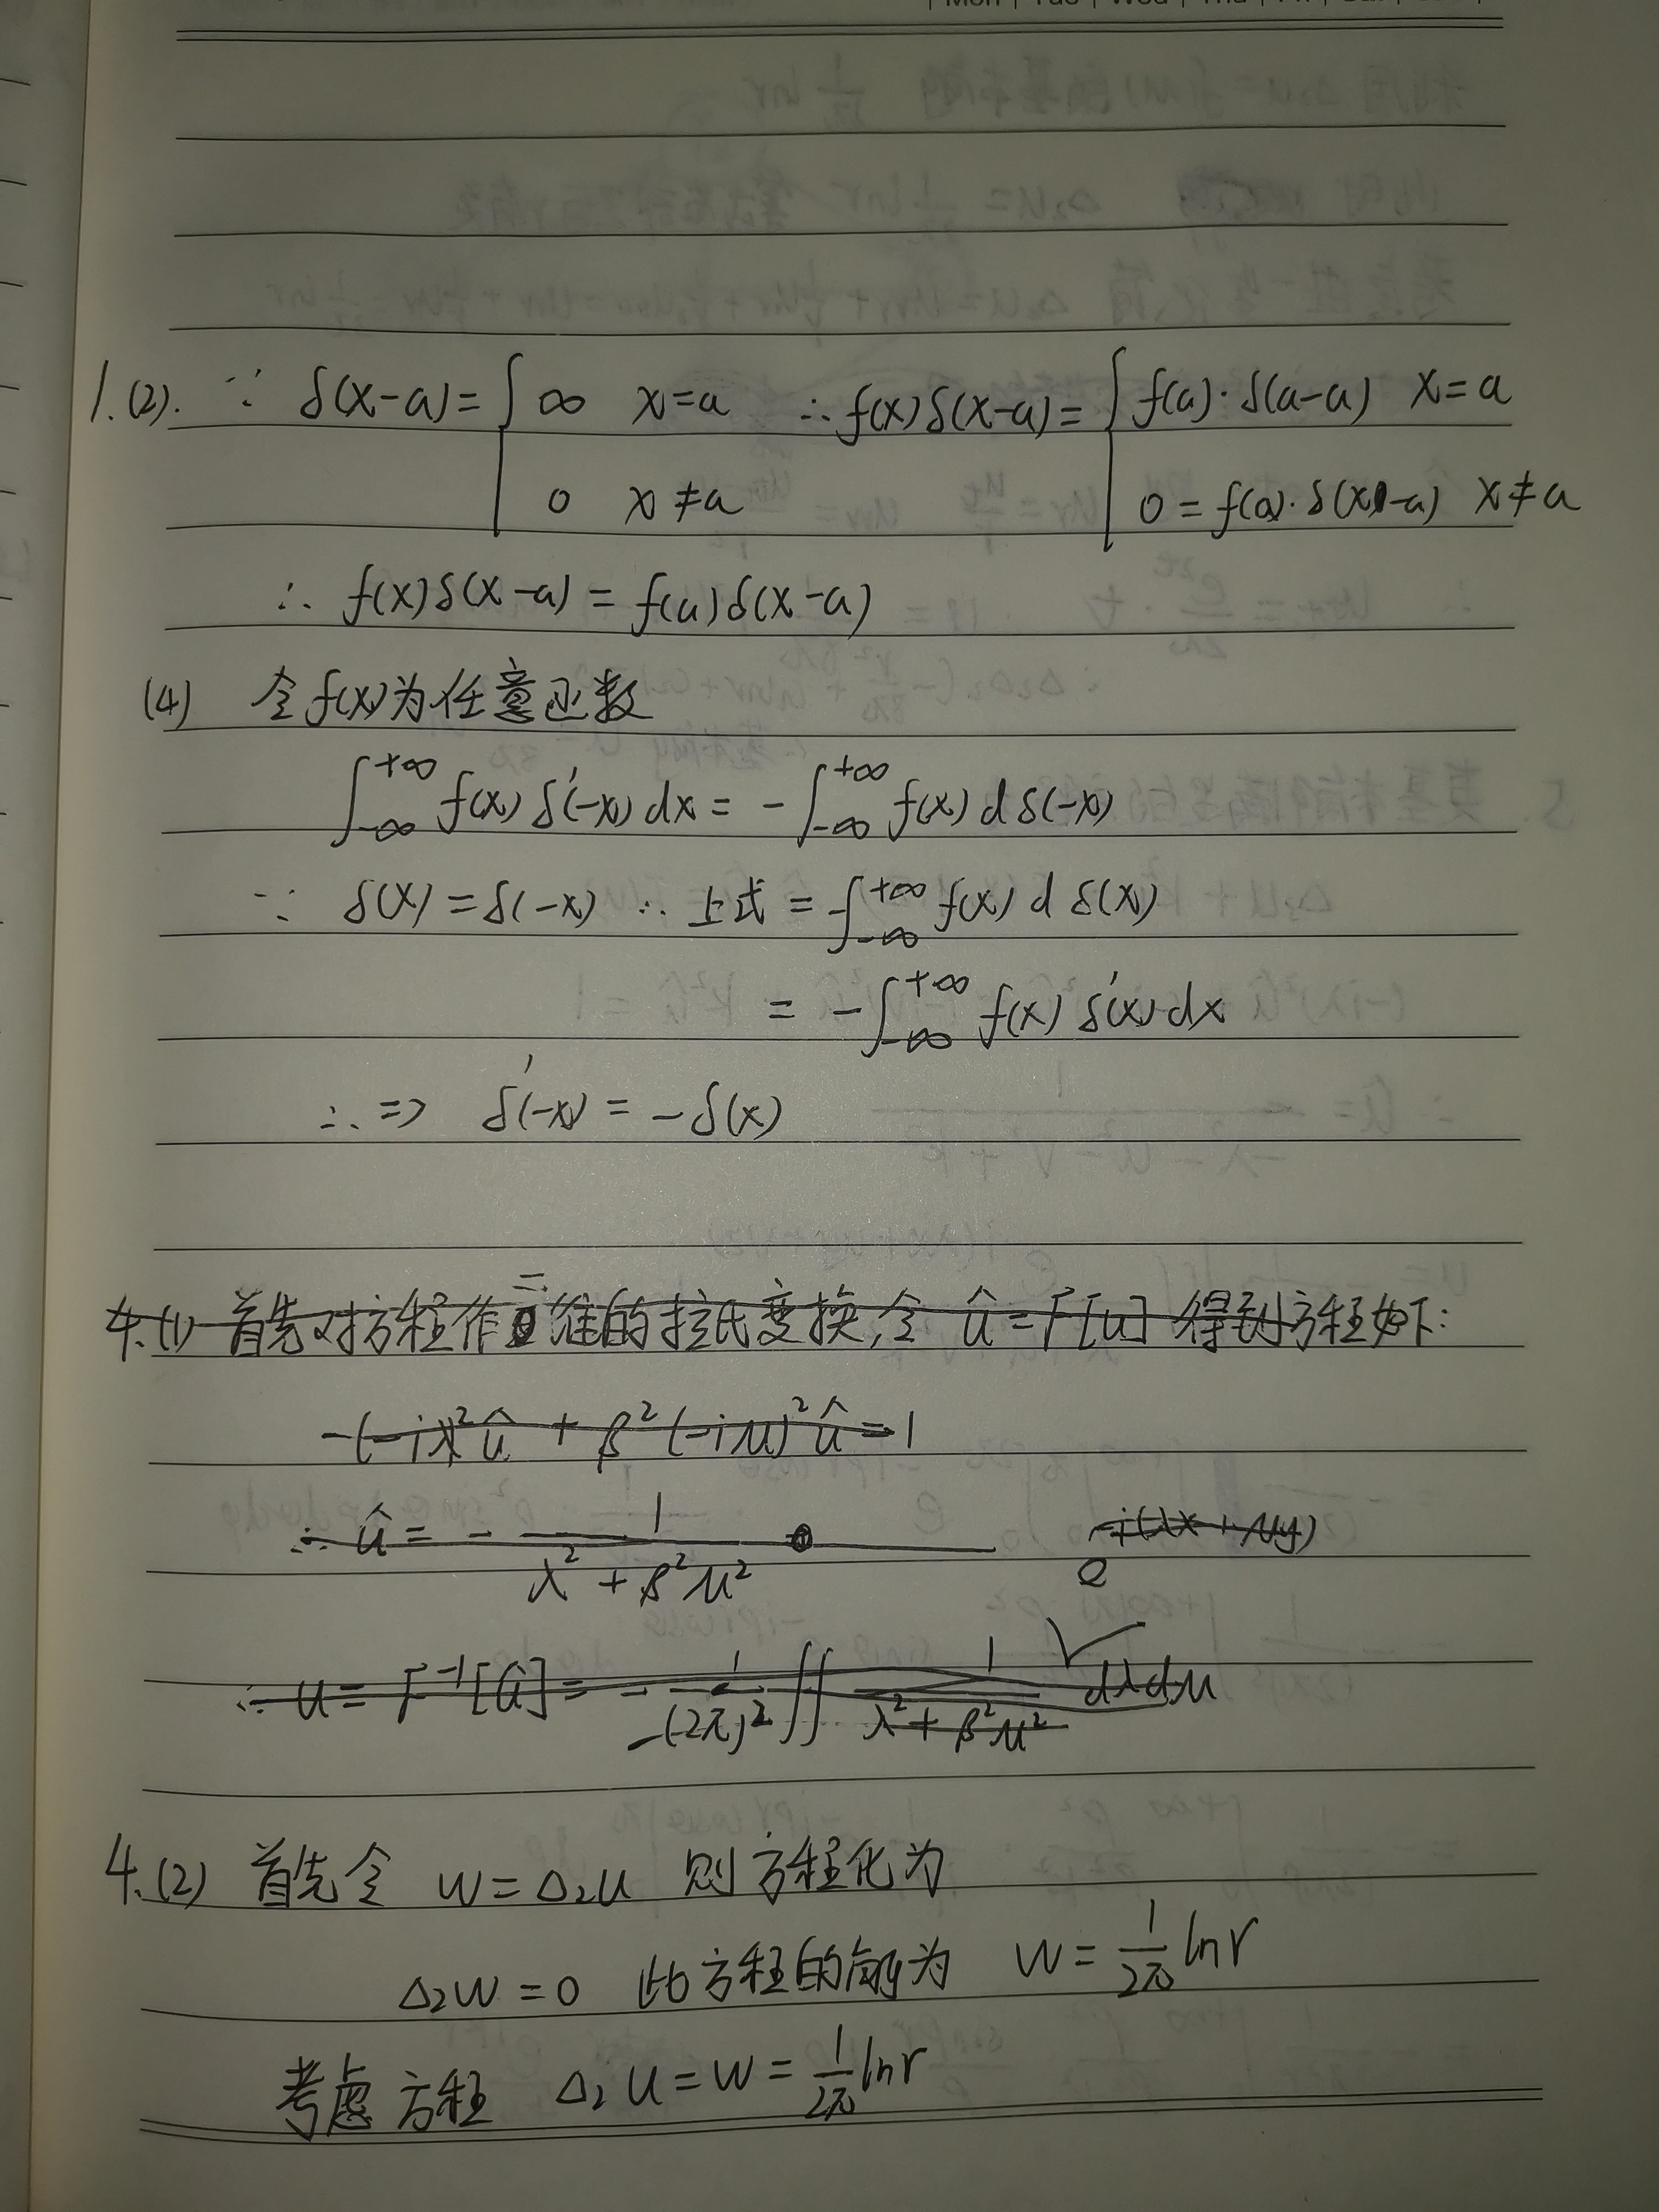 Mon | Tue | Wed | Thu | Fri | Sat
1.(2). ∵ δ(x-a) = { ∞ x=a ∴ f(x)δ(x-a) = { f(a)·δ(a-a) x=a
0 x≠a 0 = f(a)·δ(x-a) x≠a
∴ f(x)δ(x-a) = f(a)δ(x-a)
(4) 令f(x)为任意函数
∫_{-∞}^{+∞} f(x) δ'(-x) dx = -∫_{-∞}^{+∞} f(x) d δ(-x)
∵ δ(x) = δ(-x) ∴ 上式 = -∫_{-∞}^{+∞} f(x) d δ(x)
= -∫_{-∞}^{+∞} f(x) δ'(x) dx
∴ ⇒ δ'(-x) = -δ(x)
4.(1) 首先对方程作二维的拉氏变换,令 û = F[u] 得到方程如下:
-(-iλ)²û + β²(-iμ)²û = 1
∴ û = - 1/(λ²+β²μ²) e^{-i(λx+μy)}
∴ u = F⁻¹[û] = - 1/(2π)² ∬ 1/(λ²+β²μ²) dλdμ
4.(2) 首先令 w = Δ₂u 则方程化为
Δ₂w = 0 此方程的解为 w = 1/2π lnr
考虑方程 Δ₂u = w = 1/2π lnr